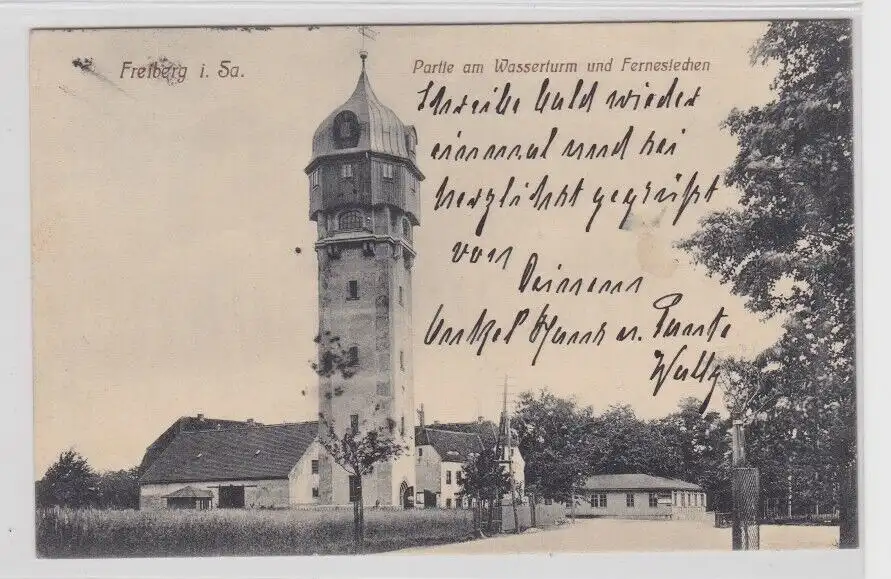 Freiberg i. Sa.
Partie am Wasserturm und Fernesiechen
Schreibe bald wieder
einmal und sei
herzlichst gegrüßt
von
Deinem
Onkel Hans u. Tante